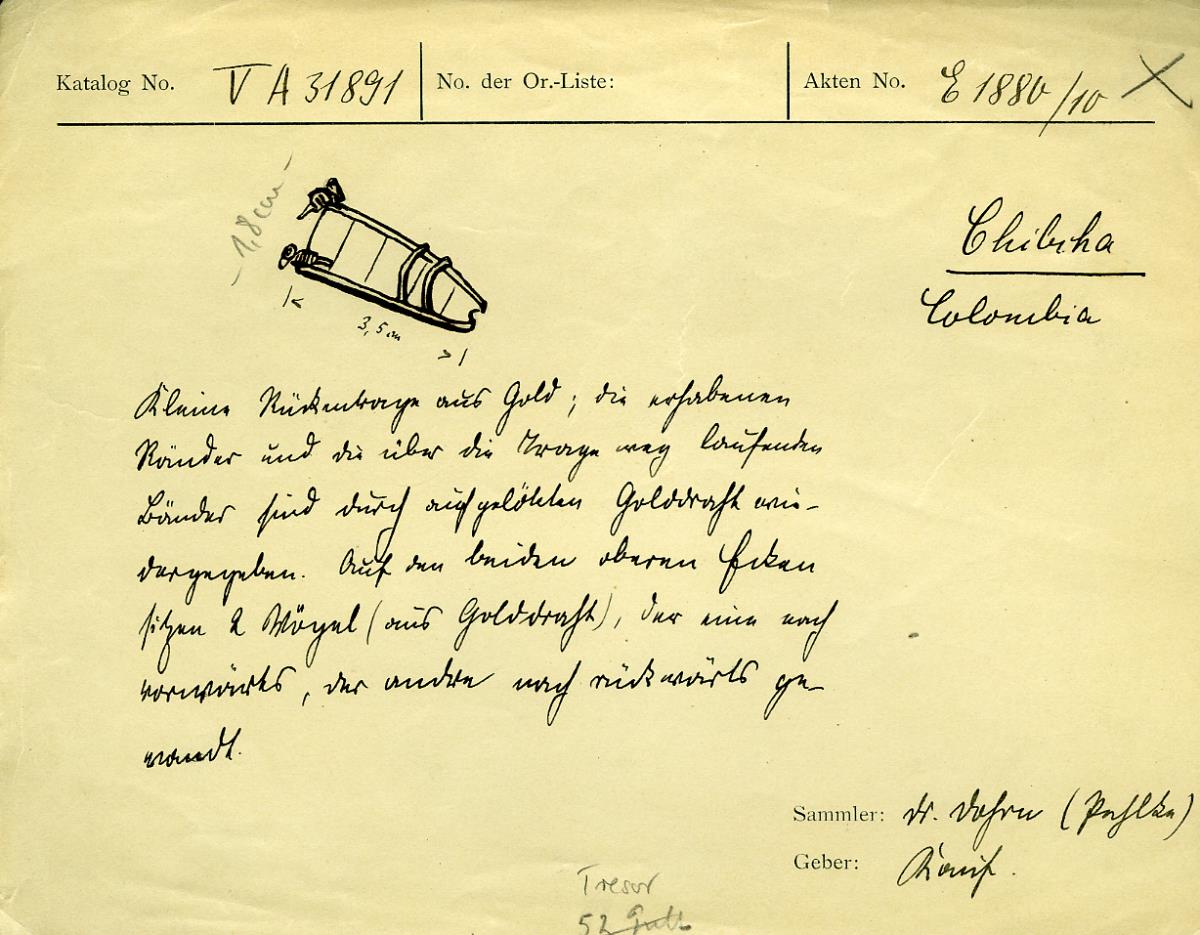 Katalog No. V A 31891 No. der Or.-Liste: Akten No. E 1880/10 X
- 1,8 cm -
Chibcha
Colombia
3,5 cm
Kleine Rückentrage aus Gold; die erhabenen
Ränder und die über die Trage weg laufenden
Bänder sind durch aufgelöteten Golddraht wie-
dergegeben. Auf den beiden oberen Ecken
sitzen 2 Vögel (aus Golddraht), der eine nach
vorwärts, der andre nach rückwärts ge-
wandt.
Sammler: Dr. Dohrn (Pehlke)
Geber: Kauf.
Tresor
52